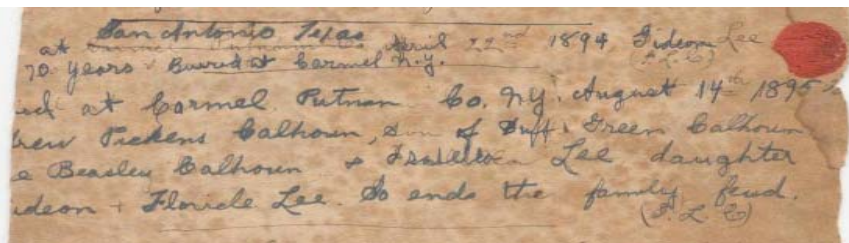 San Antonio Texas
at April 22nd 1894, Gideon Lee
70 years Buried at Carmel N.Y. (F. L. C)
at Carmel Putnam Co. NY. August 14th 1895
Pickens Calhoun, Son of Duff Green Calhoun
Beasley Calhoun & Lee daughter
ideon + Floride Lee. So ends the family feud.
(F. L. C)